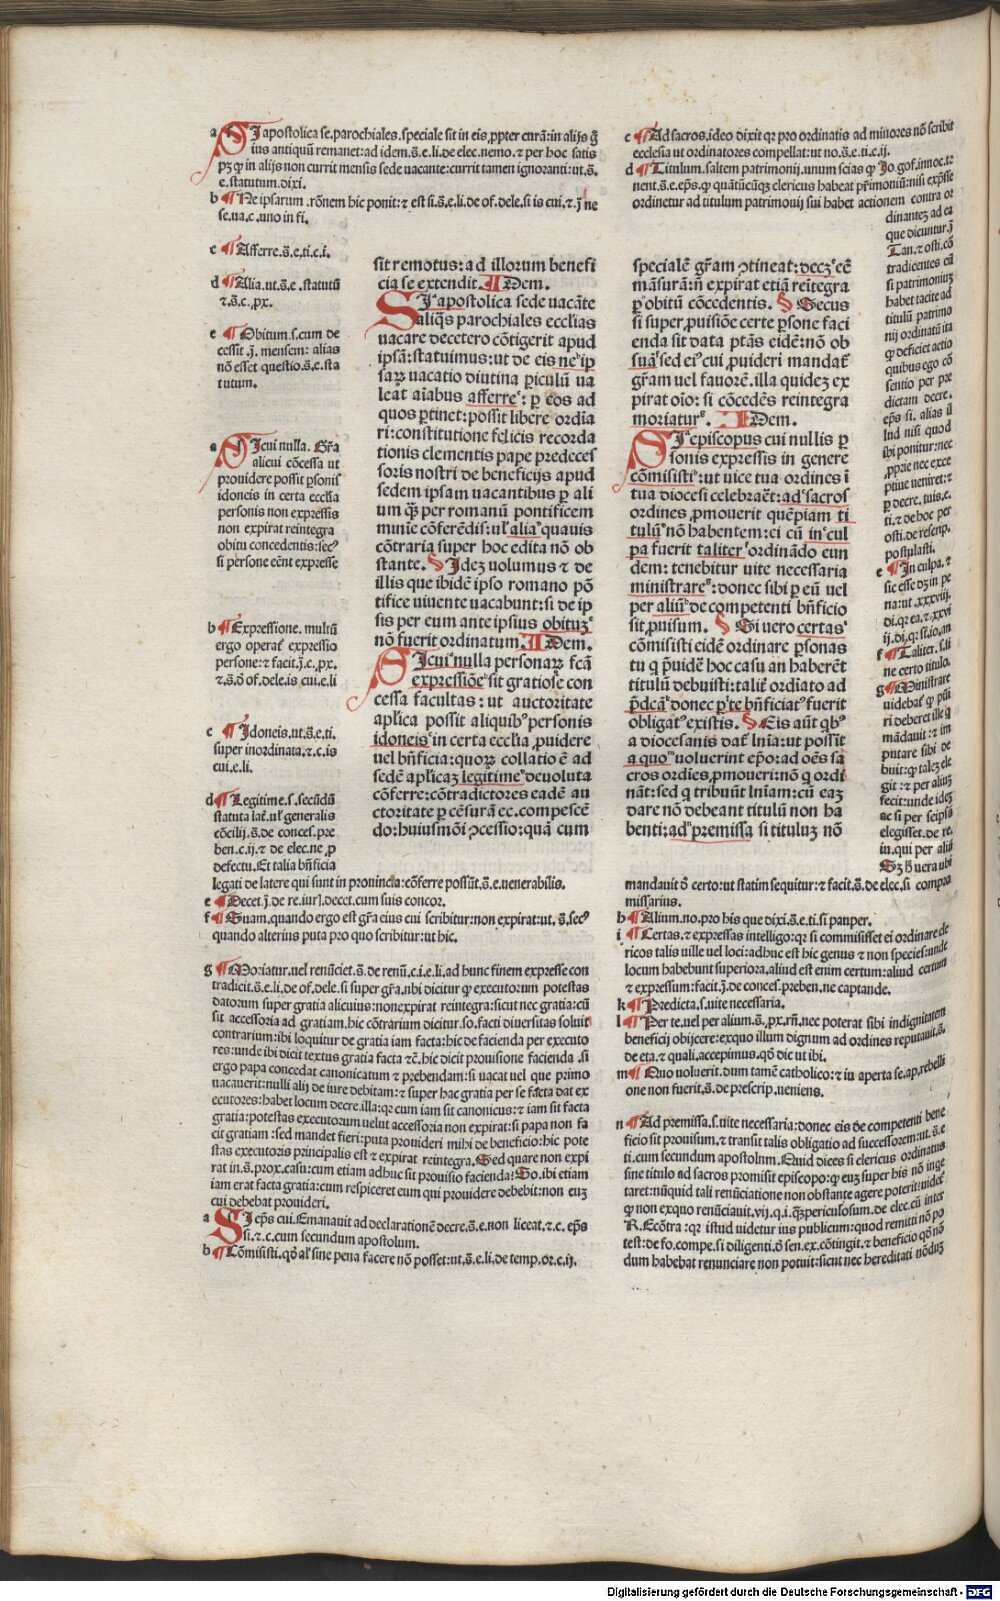 a SI apostolica se. parochiales. speciale sit in eis ꝓpter curā: in alijs ḡ
ius antiquū remanet: ad idem. s̄. e. li. de elec. nemo. ⁊ per hoc satis
in alijs non currit mensis sede vacante: currit tamen ignoranti: ut. s̄.
e. statutum. dixi.
b ¶ Ne ipsarum. rōnem hic ponit: ⁊ est si. s̄. e. li. de of. dele. si is cui. ⁊. j̄ ne
se. ua. c. uno in fi.
c ¶ Afferre. s̄. e. ti. c. i.
d ¶ Alia. ut. s̄. e. statutū
⁊. s̄. c. ꝓx.
e ¶ Obitum. s. cum de
cessit. j̄. mensem: alias
nō esset questio. s̄. e. sta
tutum.
a SI cui nulla. Gr̄a
alicui cōcessa ut
prouidere possit ꝑsonis
idoneis in certa ecclīa
personis non expressis
non expirat reintegra
obitu concedentis: secꝰ
si persone eēnt expresse
b ¶ Expressione. multū
ergo operat̄ expressio
persone: ⁊ facit. j̄. c. ꝓx.
⁊. s̄. ō of. dele. is cui. e. li
c ¶ Idoneis. ut. s̄. e. ti.
super inordinata. ⁊. c. is
cui. e. li.
d ¶ Legitime. s. secūdū
statuta lat̄. ul̄ generalis
cōcilij. s̄. de conces. pre
ben. c. ij. ⁊ de elec. ne ꝓ
defectu. Et talia bn̄ficia
legati de latere qui sunt in prouincia: cōferre possūt. s̄. e. uenerabilis.
e ¶ Decet. j̄. de re. iur. decet. cum suis concor.
f ¶ Suam. quando ergo est gr̄a eius cui scribitur: non expirat: ut. s̄. secꝰ
quando alterius puta pro quo scribitur: ut hic.
g ¶ Moriatur. uel renūciet. s̄. de renū. c. i. e. li. ad hunc finem expresse con
tradicit. s̄. e. li. de of. dele. si super gr̄a. ubi dicitur ꝙ executorum potestas
datorum super gratia alicuius: non expirat reintegra: sicut nec gratia: cū
sit accessoria ad gratiam. hic cōtrarium dicitur. so. facti diuersitas soluit
contrarium: ibi loquitur de gratia iam facta: hic de facienda per executo
res: unde ibi dicit textus gratia facta ⁊c̄. hic dicit prouisione facienda. si
ergo papa concedat canonicatum ⁊ prebendam: si uacat uel que primo
uacauerit: nulli alij de iure debitam: ⁊ super hac gratia per se facta dat ex
ecutores: habet locum decre. illa: qr cum iam sit canonicus: ⁊ iam sit facta
gratia: potestas executorum uelut accessoria non expirat: si papa non fa
cit gratiam: sed mandet fieri: puta prouideri mihi de beneficio: hic pote
stas executoris principalis est ⁊ expirat reintegra. Sed quare non expi
rat in. s̄. prox. casu: cum etiam adhuc sit prouisio facienda: So. ibi etiam
iam erat facta gratia: cum respiceret eum qui prouidere debebit: non euꝫ
cui debebat prouideri.
a SI ep̄s cui. Emanauit ad declarationē decre. s̄. e. non liceat. ⁊. c. ep̄s
si. ⁊. c. cum secundum apostolum.
b ¶ Cōmisisti. qō al̄ sine pena facere nō posset: ut. s̄. e. li. de temp. or. c. ij.
sit remotus: ad illorum benefi
cia se extendit. ¶ Idem.
SI apostolica sede uacāte
aliq̄s parochiales ecclīas
uacare decetero cōtigerit apud
ipsā: statuimus: ut de eis ne ip
saꝝ uacatio diutina ꝑiculū ua
leat aīabus afferre: ꝑ eos ad
quos ꝑtinet: possit libere ordīa
ri: constitutione felicis recorda
tionis clementis pape predeces
soris nostri de beneficijs apud
sedem ipsam uacantibus ꝑ ali
um q̄ꝫ per romanū pontificem
minīe cōferēdis: ul̄ alia quauis
cōtraria super hoc edita nō ob
stante. § Ideꝫ uolumus ⁊ de
illis que ibidē ipso romano pō
tifice uiuente uacabunt: si de ip
sis per eum ante ipsius obituꝫ
nō fuerit ordinatum. ¶ Idem.
SI cui nulla personaꝝ fc̄ā
expressiōe sit gratiose con
cessa facultas: ut auctoritate
aplīca possit aliquibꝰ personis
idoneis in certa ecclīa ꝓuidere
uel bn̄ficia: quoꝝ collatio ē ad
sedē aplicaꝫ legitime deuoluta
cōferre: cōtradictores eadē au
ctoritate ꝑ cēsurā ec. compescē
do: huiusmōi ꝯcessio: quā cum
specialē gr̄am ꝯtineat: deceꝫ eē
māsurā: n̄ expirat etiā reītegra
ꝑ obitū cōcedentis. § Secus
si super ꝓuisiōe certe ꝑsone faci
enda sit data ptās eidē: nō ob
suā sed eiꝰ cui ꝓuideri mandat̄
gr̄am uel fauorē. illa quideꝫ ex
pirat oīo: si cōcedēs reintegra
moriatur. ¶ Idem.
SI episcopus cui nullis ꝑ
sonis expressis in genere
cōmisisti: ut uice tua ordines ī
tua diocesi celebraēt: ad sacros
ordines ꝓmouerit quēpiam ti
tulū nō habentem: ei cū in cul
pa fuerit taliter ordinādo eun
dem: tenebitur uite necessaria
ministrare: donec sibi ꝑ eū uel
per aliū de competenti bn̄ficio
sit ꝓuisum. § Si uero certas
cōmisisti eidē ordinare ꝑsonas
tu q ꝓuidē hoc casu an haberēt
titulū debuisti: talit̄ ordīato ad
p̄dcā donec ꝑ te bn̄ficiatꝰ fuerit
obligatꝰ existis. § Eis aūt qbꝰ
a diocesanis dat̄ lnīa: ut possīt
a quo uoluerint epō: ad oēs sa
cros ordīes ꝓmoueri: nō q ordi
nāt: sed q tribuūt lnīam: cū eaꝫ
dare nō debeant titulū non ha
benti: ad premissa si tituluꝫ nō
c ¶ Ad sacros. ideo dixit qr pro ordinatis ad minores nō scribit
ecclesia ut ordinatores compellat: ut no. s̄. e. ti. c. ij.
d ¶ Titulum. saltem patrimonij. unum scias ꝙ Jo. gof. innoc. te
nent. s̄. e. ep̄s. ꝙ quātūcūqꝫ clericus habeat p̄rimoniū: nisi exp̄sse
ordinetur ad titulum patrimonij sui habet actionem contra or
dinantez ad ea
que dicuntur. j̄
Tan. ⁊ osti. cō
tradicentes eū
si patrimoniuꝫ
habet tacite ad
titulū patrimo
nij ordinatū ita
ꝙ deficiet actio
quibus ego cō
sentio per pre
dictam decre.
ep̄s si. alias il
lud nisi quod
ibi ponitur: nec
ꝓprie nec exce
ptiue ueniret: ⁊
ꝑ decre. tuis. e.
ti. ⁊ de hoc per
osti. de rescrip.
postulasti.
e ¶ In culpa. ⁊
sic esse dꝫ in pe
na: ut. xxxviij.
di. qr ea. ⁊. xxvi
ij. di. q: si. io. an
f ¶ Taliter. s. li
ne certo titulo.
g ¶ Ministrare
uidebat̄ ꝙ pūi
ri deberet ille q
mādauit: ⁊ im
putare sibi de
buit: ꝙ taleꝫ ele
git: ⁊ per aliuꝫ
fecit: unde ideꝫ
ac si per seipsū
elegisset. de re.
iu. qui per aliū
Sꝫ h̄ uera ubi
mandauit ō certo: ut statim sequitur: ⁊ facit. s̄. de elec. si compro
missarius.
h ¶ Alium. no. pro his que dixi. s̄. e. ti. si pauper.
i ¶ Certas. ⁊ expressas intelligo: qr si commisisset ei ordinare cle
ricos talis uille uel loci: adhuc est hic genus ⁊ non species: unde
locum habebunt superiora. aliud est enim certum: aliud certum
⁊ expressum: facit. j̄. de conces. preben. ne captande.
k ¶ Predicta. s. uite necessaria.
l ¶ Per te. uel per alium. s̄. ꝓx. rn̄. nec poterat sibi indignitatem
beneficij obijcere: exquo illum dignum ad ordines reputauit. s̄.
de eta. ⁊ quali. accepimus. qō dic ut ibi.
m ¶ Quo uoluerit. dum tamē catholico: ⁊ in aperta se. ap. rebelli
one non fuerit. s̄. de prescrip. ueniens.
n ¶ Ad premissa. s. uite necessaria: donec eis de competenti bene
ficio sit prouisum. ⁊ transit talis obligatio ad successorem: ut. s̄. e
ti. cum secundum apostolum. Quid dices si clericus ordinatus
sine titulo ad sacros promisit episcopo: ꝙ euꝫ super his nō inqe
taret: nūquid tali renūciatione non obstante agere poterit: uidet̄
ꝙ non exquo renūciauit. vij. q. i. qꝫpericulosum. de elec. cū inter
R. Ecōtra: qr istud uidetur ius publicum: quod remitti nō po
test: de fo. compe. si diligenti. ō sen. ex. cōtingit. ⁊ beneficio qō nō
dum habebat renunciare non potuit: sicut nec hereditati nōduꝫ
Digitalisierung gefördert durch die Deutsche Forschungsgemeinschaft - DFG